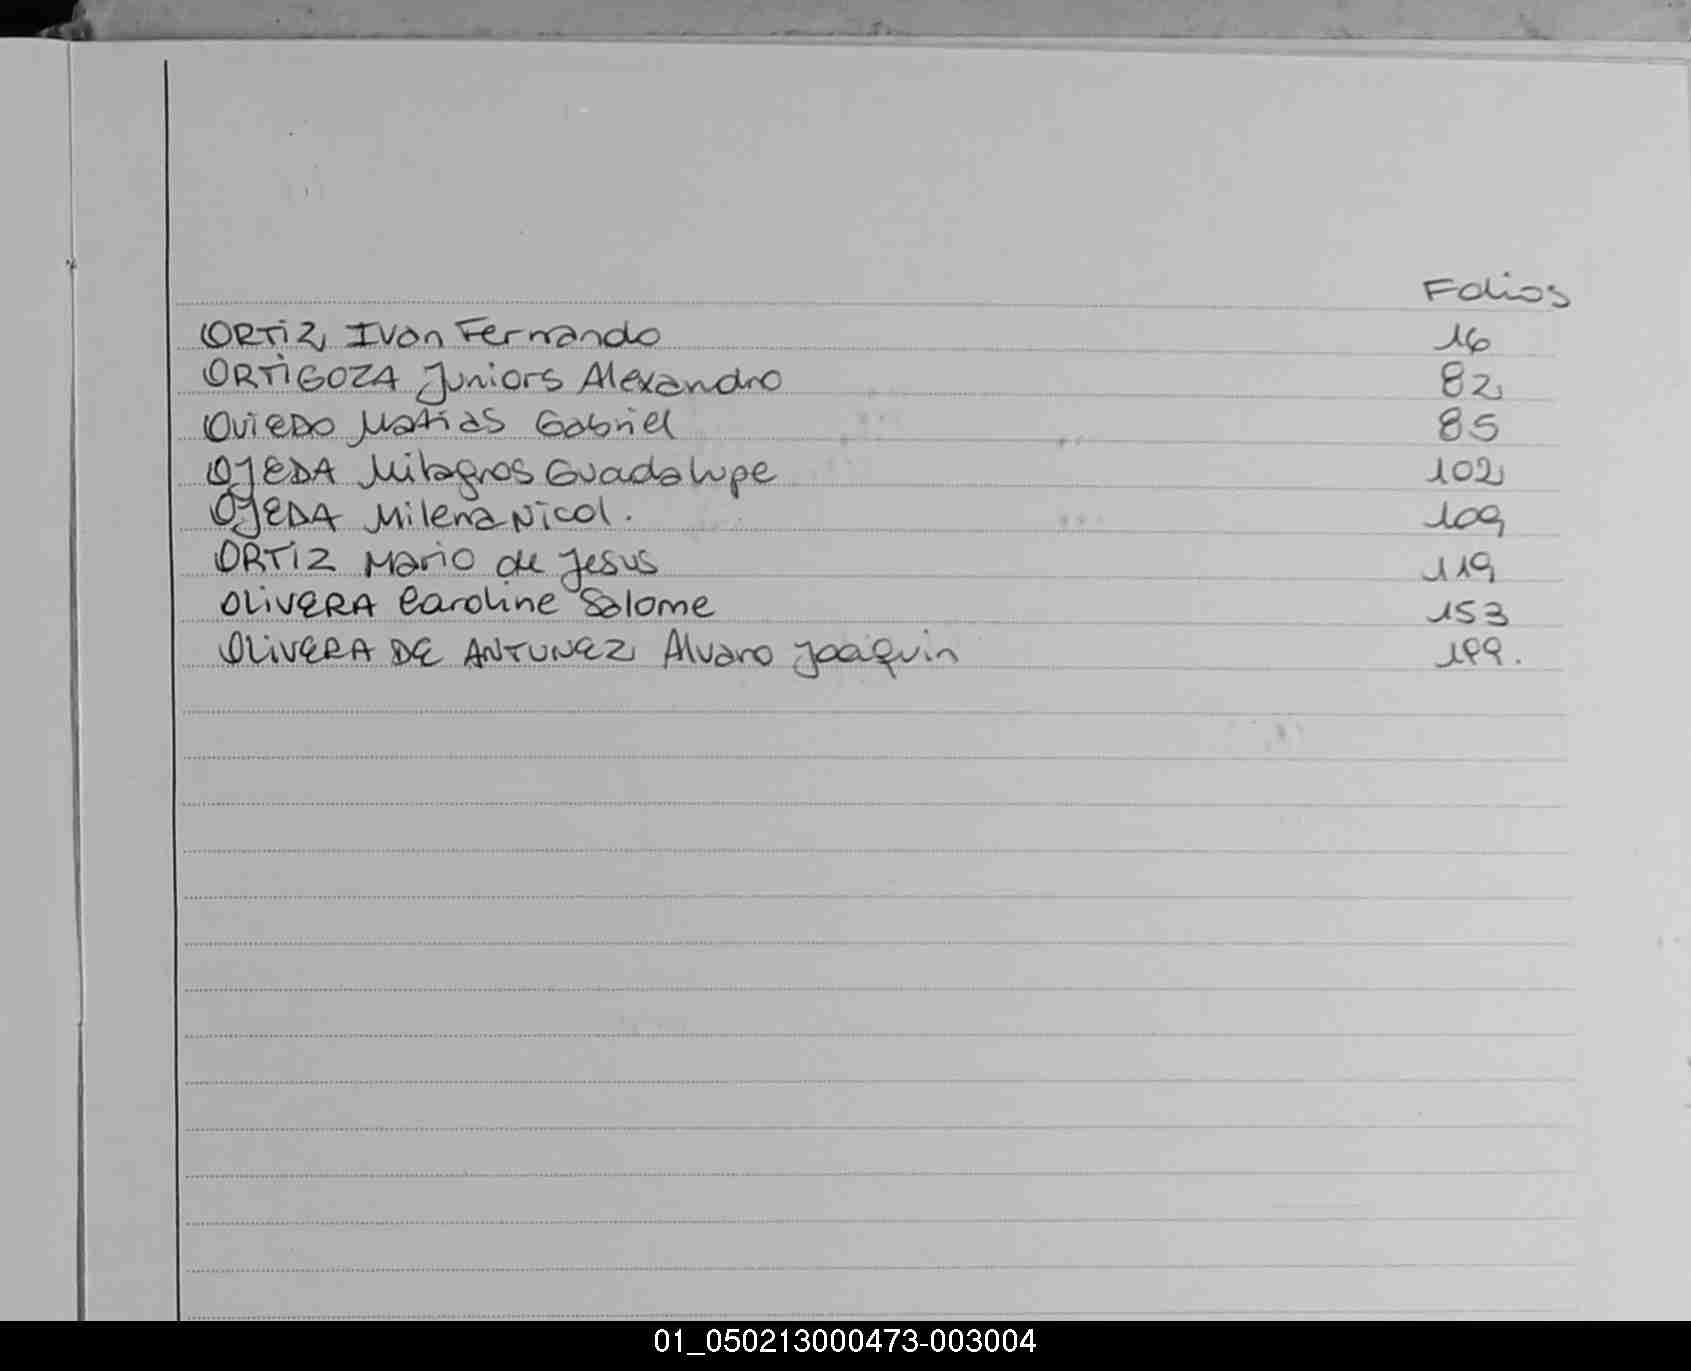 Folios
ORTiZ, Ivan Fernando 16
ORTiGOZA Juniors Alexandro 82
OViEDO Matias Gabriel 85
OJEDA Milagros Guadalupe 102
OJEDA Milena Nicol. 109
ORTiZ Mario de Jesus 119
OLiVERA Caroline Salome 153
OLiVERA DE ANTUNEZ Alvaro Joaquin 199.
01_050213000473-003004